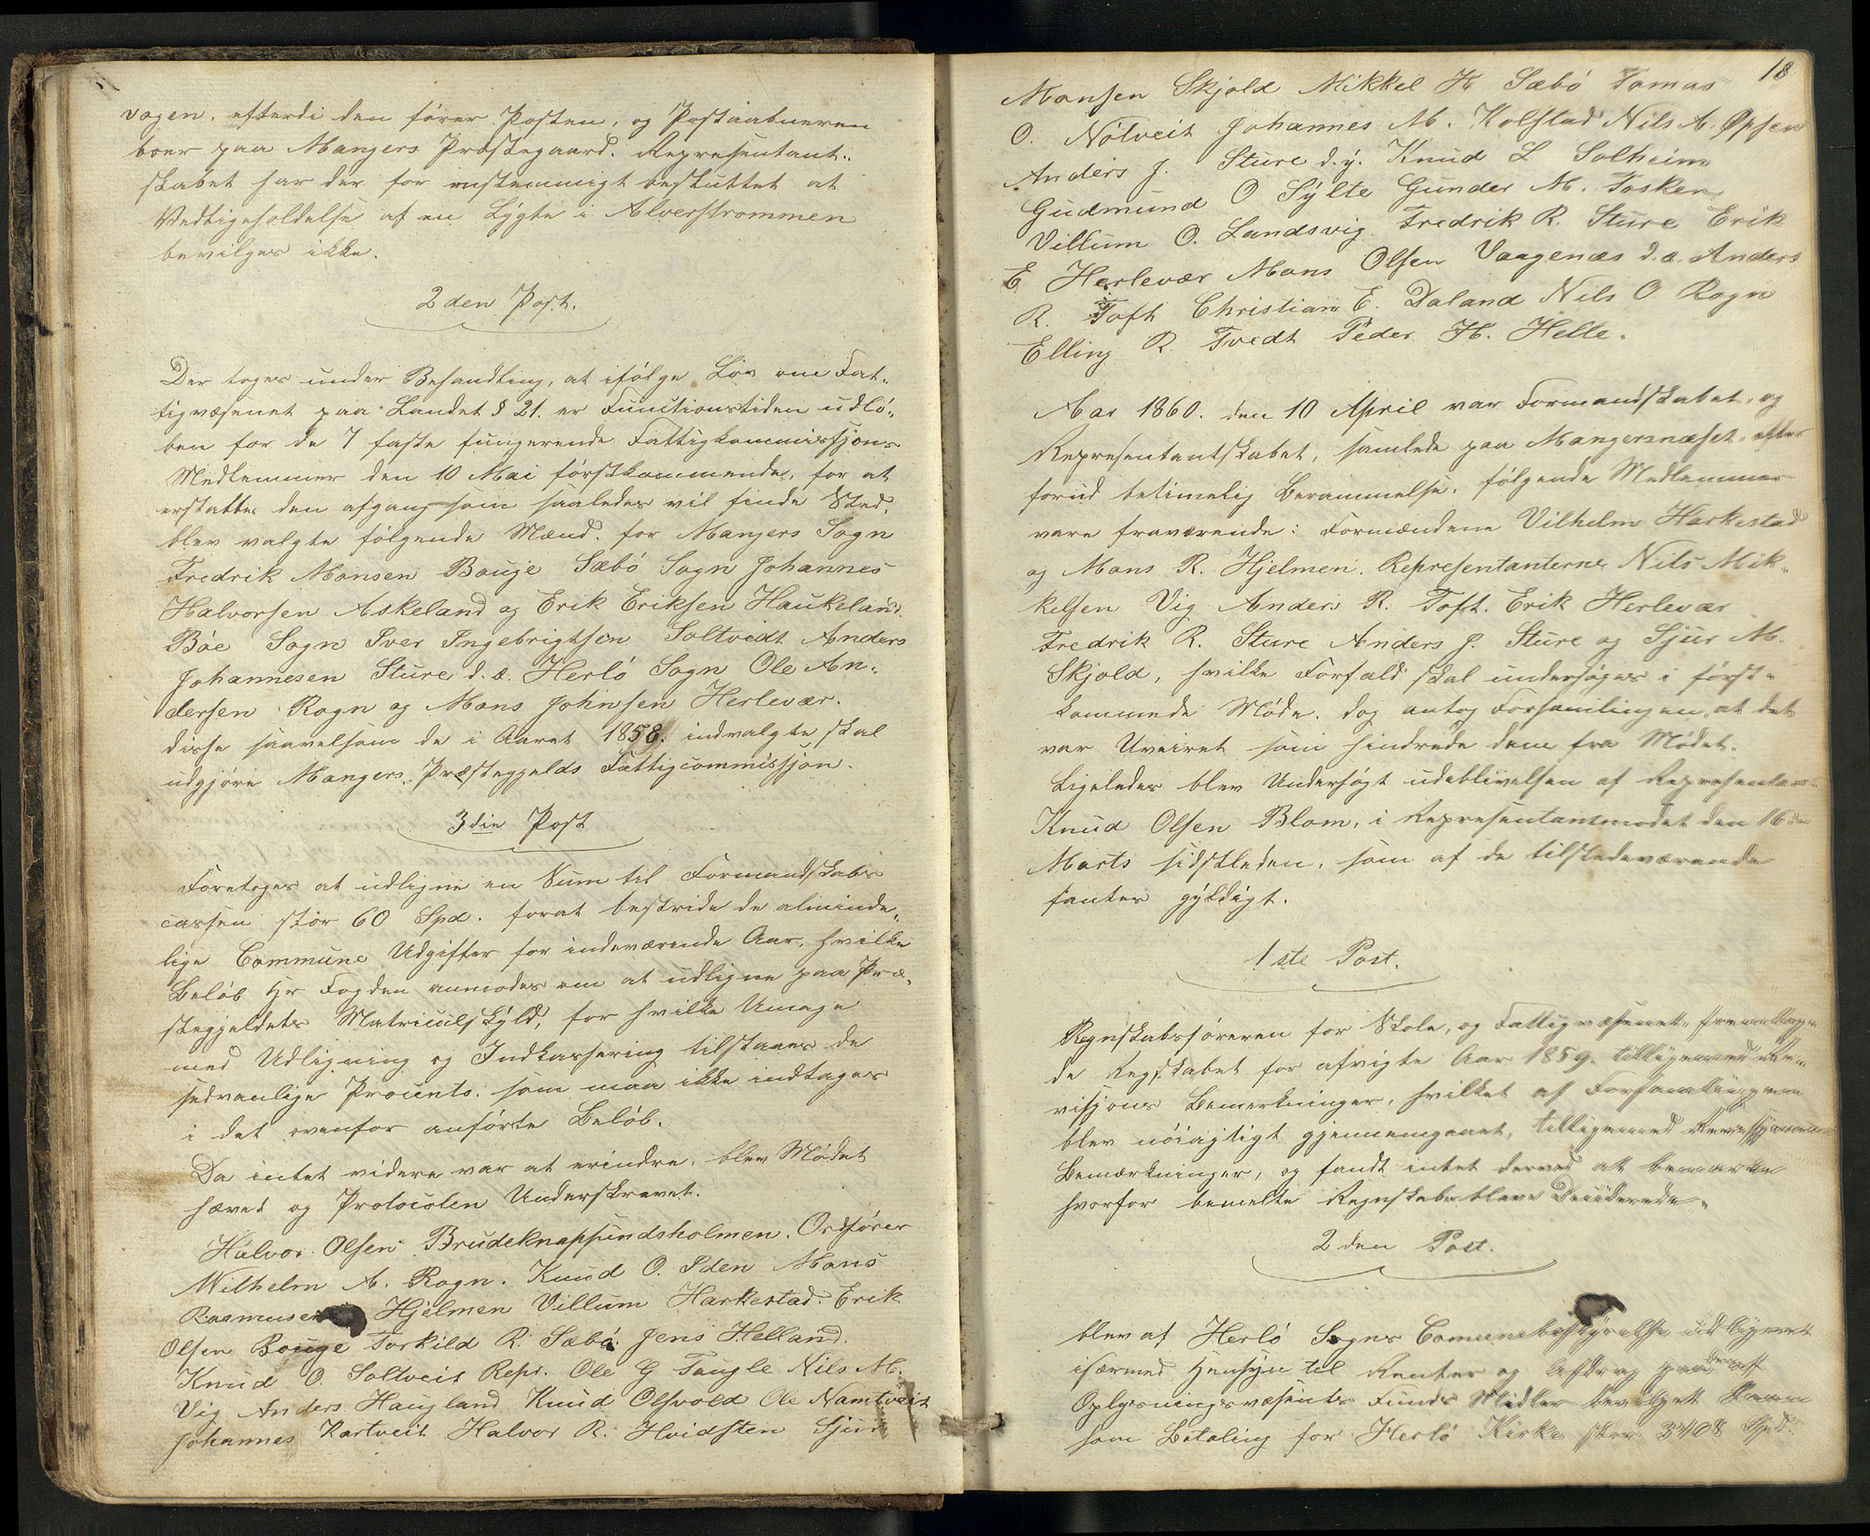 vogen, efterdi den fører Posten, og Postaabneren
boer paa Mangers Præstegaard. Representant-
skabet har der for enstemmigt besluttet at
Vedligeholdelse af en Lygte i Alverstrømmen
bevilges ikke.
2den Post.
Der toges under Behandling, at ifølge Lov om Fat-
tigvæsenet paa Landet § 21. er Functionstiden udlø-
ben for de 7 faste fungerende Fattigkommissions
Medlemmer den 10 Mai førstkommende, for at
erstatte den afgang som saaledes vil finde Sted,
blev valgte følgende Mænd. for Mangers Sogn
Fredrik Monsen Bouge Sæbø Sogn Johannes
Halvorsen Askeland og Erik Eriksen Haukeland.
Bøe Sogn Iver Ingebrigtsen Soltvedt Anders
Johannesen Sture d.æ. Herlø Sogn Ole An-
dersen Rogn og Mons Johnsen Herlevær.
disse saavelsom de i Aaret 1858. indvalgte skal
udgjøre Mangers Præstegjelds Fattigcommissjon.
3die Post
Foretoges at udligne en Sum til Formandskabs
cassen stor 60 Spd. forat bestride de alminde-
lige Commune Udgifter for indeværende Aar, hvilke
Beløb Hr Fogden anmodes om at udligne paa Præ-
stegjeldets Matriculskyld, for hvilke Umage
med Udligning og Indkassering tilstaaes de
sedvanlige Procents. som maa ikke indtages
i det ovenfor anførte Beløb.
Da intet videre var at erindre, blev Mødet
hævet og Protocolen Underskrevet.
Halvor Olsen Brudeknapsundsholmen. Ordfører
Wilhelm A. Rogn. Knud O. Iden Mons
Rasmusen Hjelmen Villum Harkestad. Erik
Olsen Bouge Torkild R. Sæbø. Jens Helland.
Knud O. Soltveit Repr. Ole G Tangle Nils M.
Vig Anders Haugland Knud Olsvold Ole Namtveit
Johannes Kartveit Halvor R. Hvidsten Sjur
18
Monsen Skjold Mikkel H Sæbø Tomas
O. Nøtveit Johannes M. Kolstad Nils A. Opsen
Anders J. Sture d.y. Knud L Solheim
Gudmund O Sylte Gunder M. Tosken
Villum O. Landsvig Fredrik R. Sture Erik
E Herlevær Mons Olsen Vaagenæs d.æ. Anders
R. Toft Christian E. Daland Nils O Rogn
Elling R. Tvedt Peder H. Helle.
Aar 1860. den 10 April var Formandskabet, og
Representantskabet, samlede paa Mangersnæset, efter
forud betimelig Berammelse, følgende Medlemmer
vare fraværende: Formændene Vilhelm Harkestad
og Mons R. Hjelmen. Representanterne Nils Mik-
kelsen Vig Anders R. Toft. Erik Herlevær
Fredrik R. Sture Anders J. Sture og Sjur M.
Skjold, hvilke Forfald skal undersøges i først-
kommende Møde. dog antog Forsamlingen, at det
var Uveiret som hindrede dem fra Mødet.
Ligeledes blev Undersøgt udeblivelsen af Representant
Knud Olsen Blom, i Representantmødet den 16 den
Marts sidstleden, som af de tilstedeværende
fantes gyldigt.
1ste Post.
Regnskabsføreren for Skole, og Fattigvæsenet, fremlagde
de Regskabet for afvigte Aar 1859. tilligemed Re-
visjons Bemerkninger, hvilket af Forsamlingen
blev nøiagtigt gjennemgaaet, tilligemed Revisjonens
Bemærkninger, og fandt intet derved att bemærke
hvorfor bemelte Regnskaber bleve Desiderede.
2den Post.
blev af Herlø Sogns Comunebestyrelse udlignet
isærmed Hensyn til Renter og Afdrag paa
Oplysningsvæsenets Funds Midler bevilget
som Betaling for Herlø Kirke stor 3408 Spd.